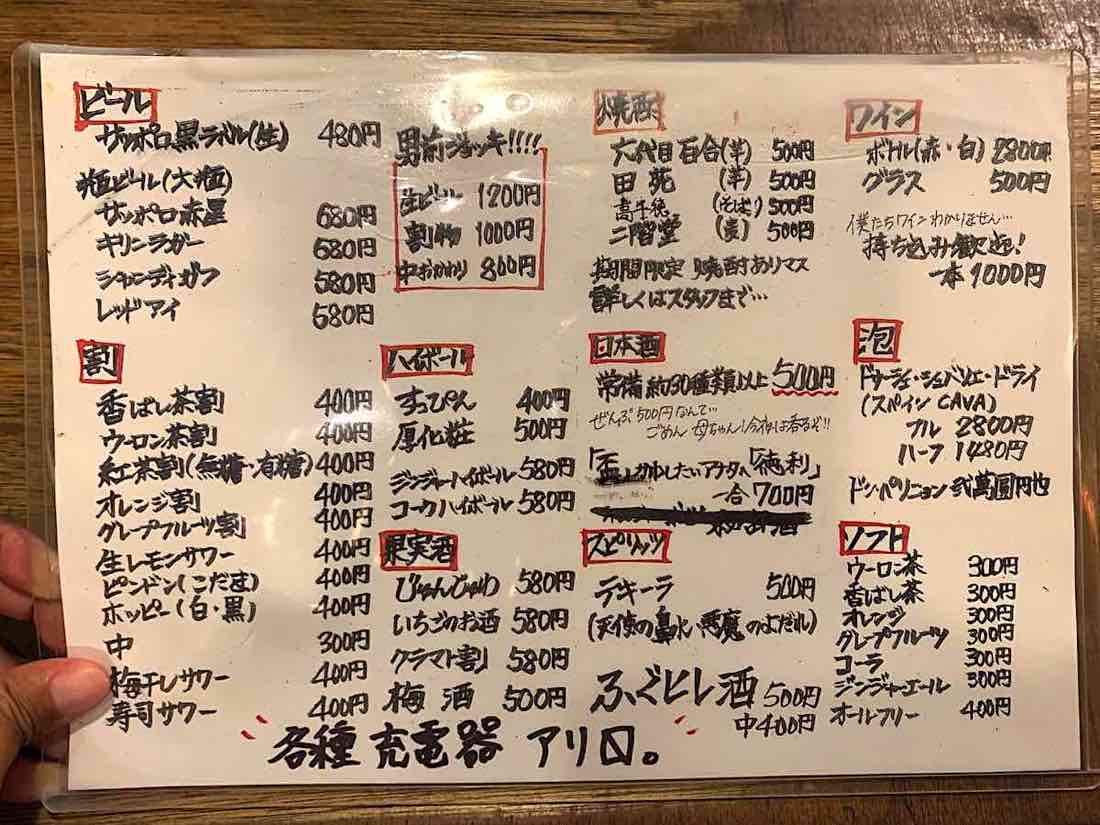 ビール
サッポロ黒ラベル(生) 480円
瓶ビール(大瓶)
サッポロ赤星 680円
キリンラガー 680円
シャンディガフ 580円
レッドアイ 580円
男前ジョッキ!!!!
生ビール 1200円
割物 1000円
中おかわり 800円
焼酎
六代目百合(芋) 500円
田苑 (芋) 500円
高千穂 (そば) 500円
二階堂 (麦) 500円
期間限定 焼酎アリマス
詳しくはスタッフまで…
ワイン
ボトル(赤・白) 2800円
グラス 500円
僕たちワインわかりません…
持ち込み歓迎!
一本1000円
割
香ばし茶割 400円
ウーロン茶割 400円
紅茶割(無糖・有糖) 400円
オレンジ割 400円
グレープフルーツ割 400円
生レモンサワー 400円
ピンドン(こだま) 400円
ホッピー(白・黒) 400円
中 300円
梅干しサワー 400円
寿司サワー 400円
ハイボール
すっぴん 400円
厚化粧 500円
ジンジャーハイボール 580円
コークハイボール 580円
果実酒
じゅんじゅわ 580円
いちごのお酒 580円
クラマト割 580円
梅酒 500円
日本酒
常備約30種類以上 500円
ぜんぶ500円なんて…
ごめん母ちゃん!今夜は呑るぞ!!
「盃しかわしたいアナタへ「徳利」
一合700円
スピリッツ
テキーラ 500円
(天使の鼻水・悪魔のよだれ)
ふぐヒレ酒 500円
中400円
泡
ドゥーシェ・シュバリエ・ドライ
(スペイン CAVA)
フル 2800円
ハーフ 1480円
ドン・ペリニョン 弐萬圓円也
ソフト
ウーロン茶 300円
香ばし茶 300円
オレンジ 300円
グレープフルーツ 300円
コーラ 300円
ジンジャーエール 300円
オールフリー 400円
各種 充電器 アリ〼。